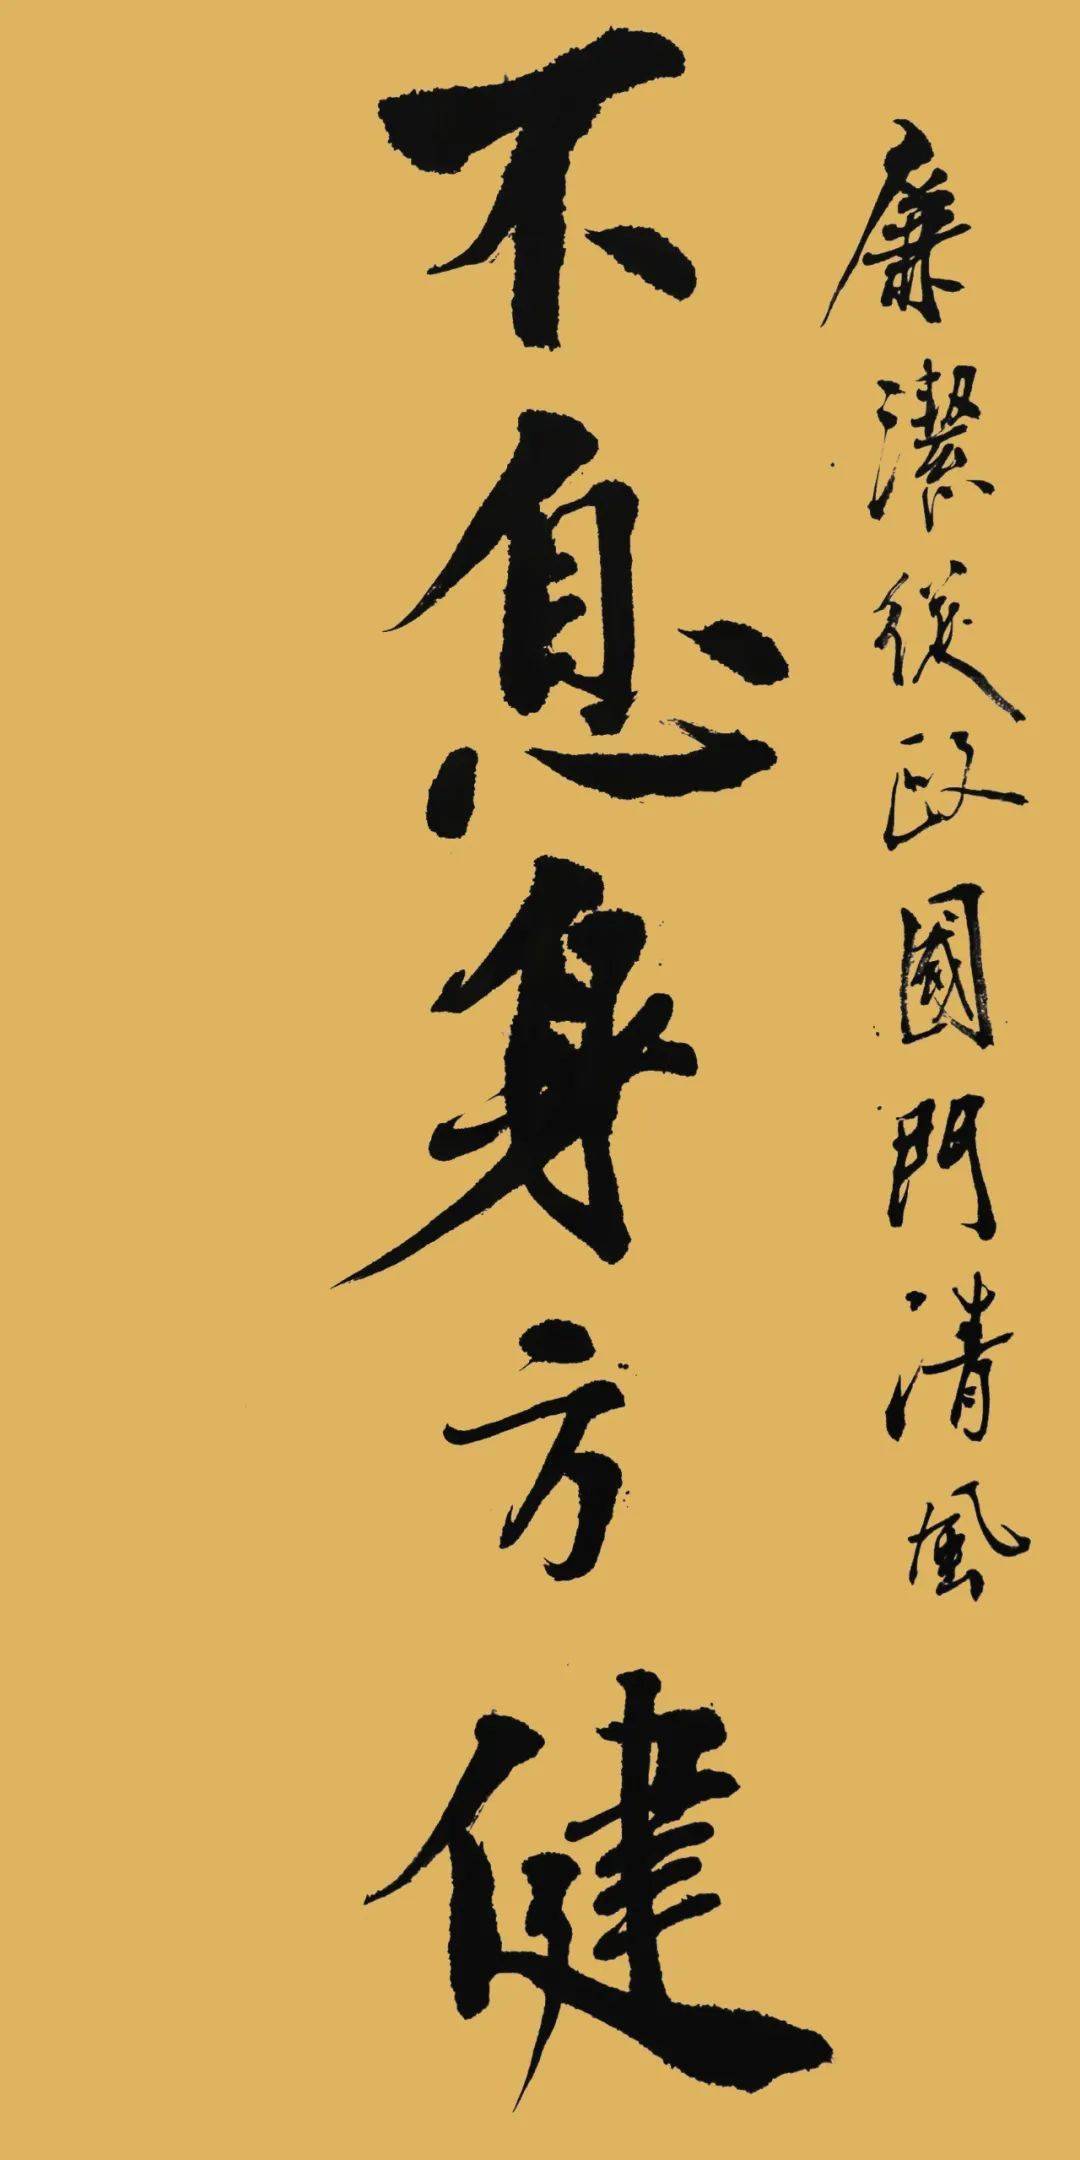 廉潔從政國門清風
不息身方健